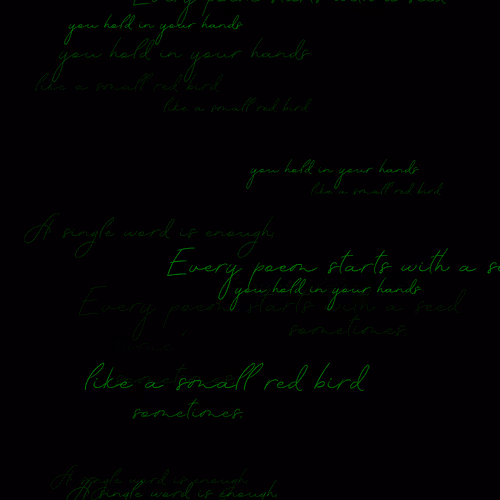 Every poem starts with a seed
you hold in your hands
you hold in your hands
like a small red bird
like a small red bird
you hold in your hands
like a small red bird
A single word is enough.
Every poem starts with a s
you hold in your hands
Every poem starts with a seed
sometimes.
like a small red bird
sometimes.
A single word is enough.
A single word is enough.